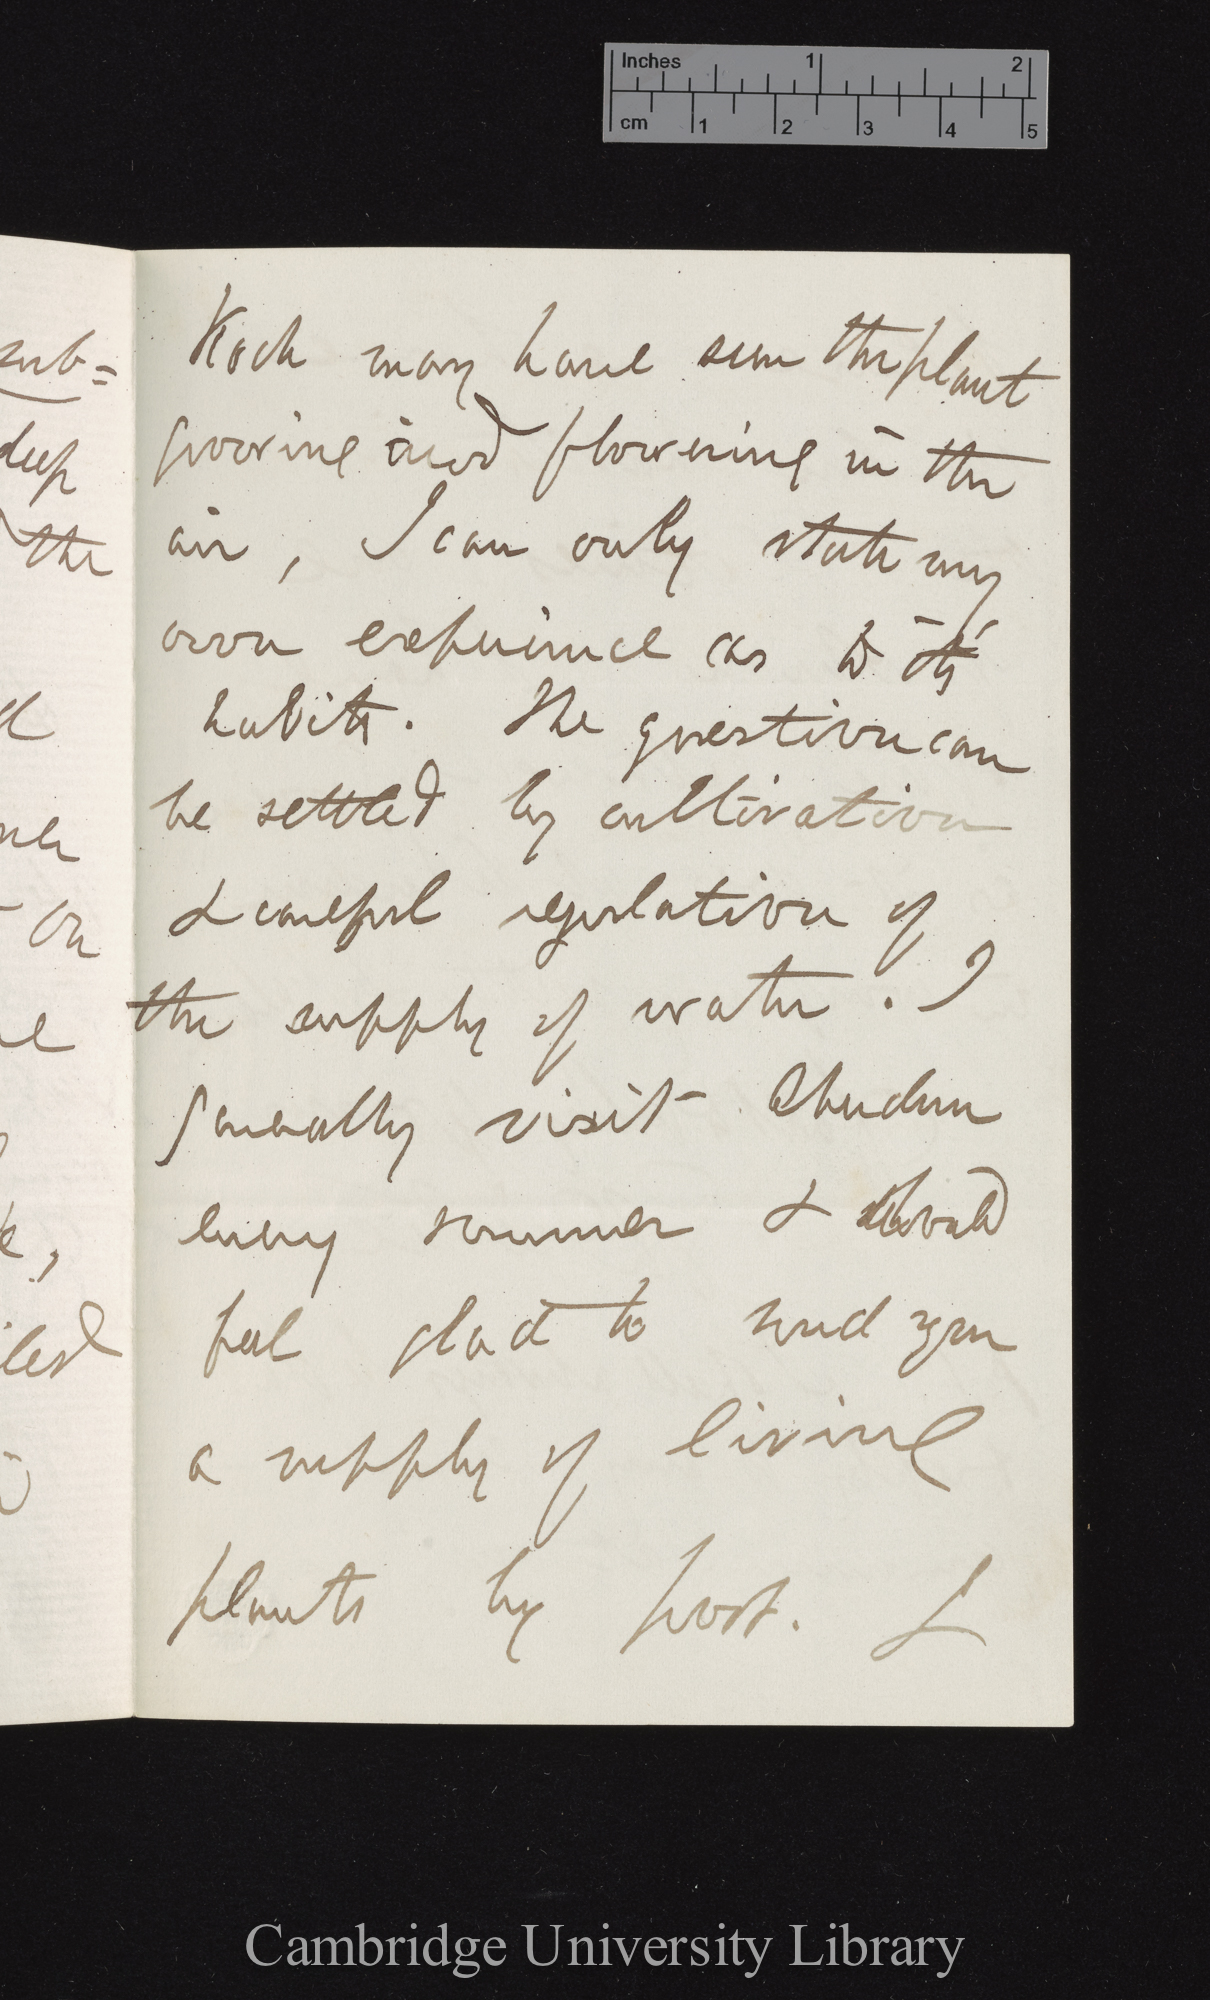 Inches 1 2
cm 1 2 3 4 5
sub=
deep
the
on
Koch may have seen the plant
growing and flowering in the
air, I can only state my
own experience as to its
habits. The question can
be settled by cultivation
& careful regulation of
the supply of water. I
generally visit
every summer & should
feel glad to send you
a supply of living
plants by post. I
Cambridge University Library